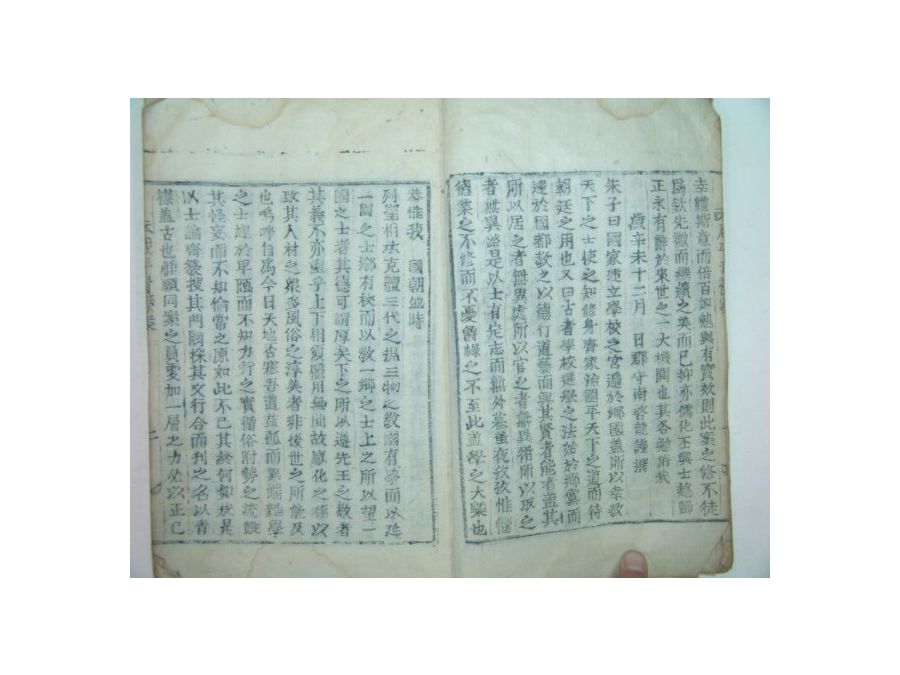 幸體斯意而倍百加勉與有實效則此案之修不徒
爲欽先徽而繼續之美而已抑亦儒化丕興士趍歸
正永有辭於來世之一大機關也其各勉旃哉
歲辛未十二月 日郡守南啓龍謹撰
朱子曰國家建立學校之官遍於鄉國盖所以幸敎
天下之士使之知修身齊家治國平天下之道而待
朝廷之用也又曰古者學校選擧之法始於鄉黨而
達於國都敎之以德行道藝而興其賢者能者盖其
所以居之者無異處所以官之者無異術所以取之
者無異路是以士有定志而無外慕蚤夜孜孜惟懼
德業之不修而不憂爵祿之不至此盖學之大檗也
恭惟我 國朝盛時
列聖相承克體三代之 三物之敎國有學而以
一國之士鄉有校而以敎一鄉之士上之所以望一
國之士者其德可謂厚矣下之所以遵先王之敎者
其義不亦重乎上下相 無間故感化之 以
致其人材之衆多風俗之淳美者非後世之所能及
也嗚呼自爲今日天地否塞吾道 孤而異端雜學
之士埋於卑 而不知力行之實循俗附勢之流
其怪妄而不知倫常之原如此不已其終何如哉是
以士論齊發搜其門閥採其文行合而刊之名以靑
襟盖古也惟願同案之員更加一層之力必以正己